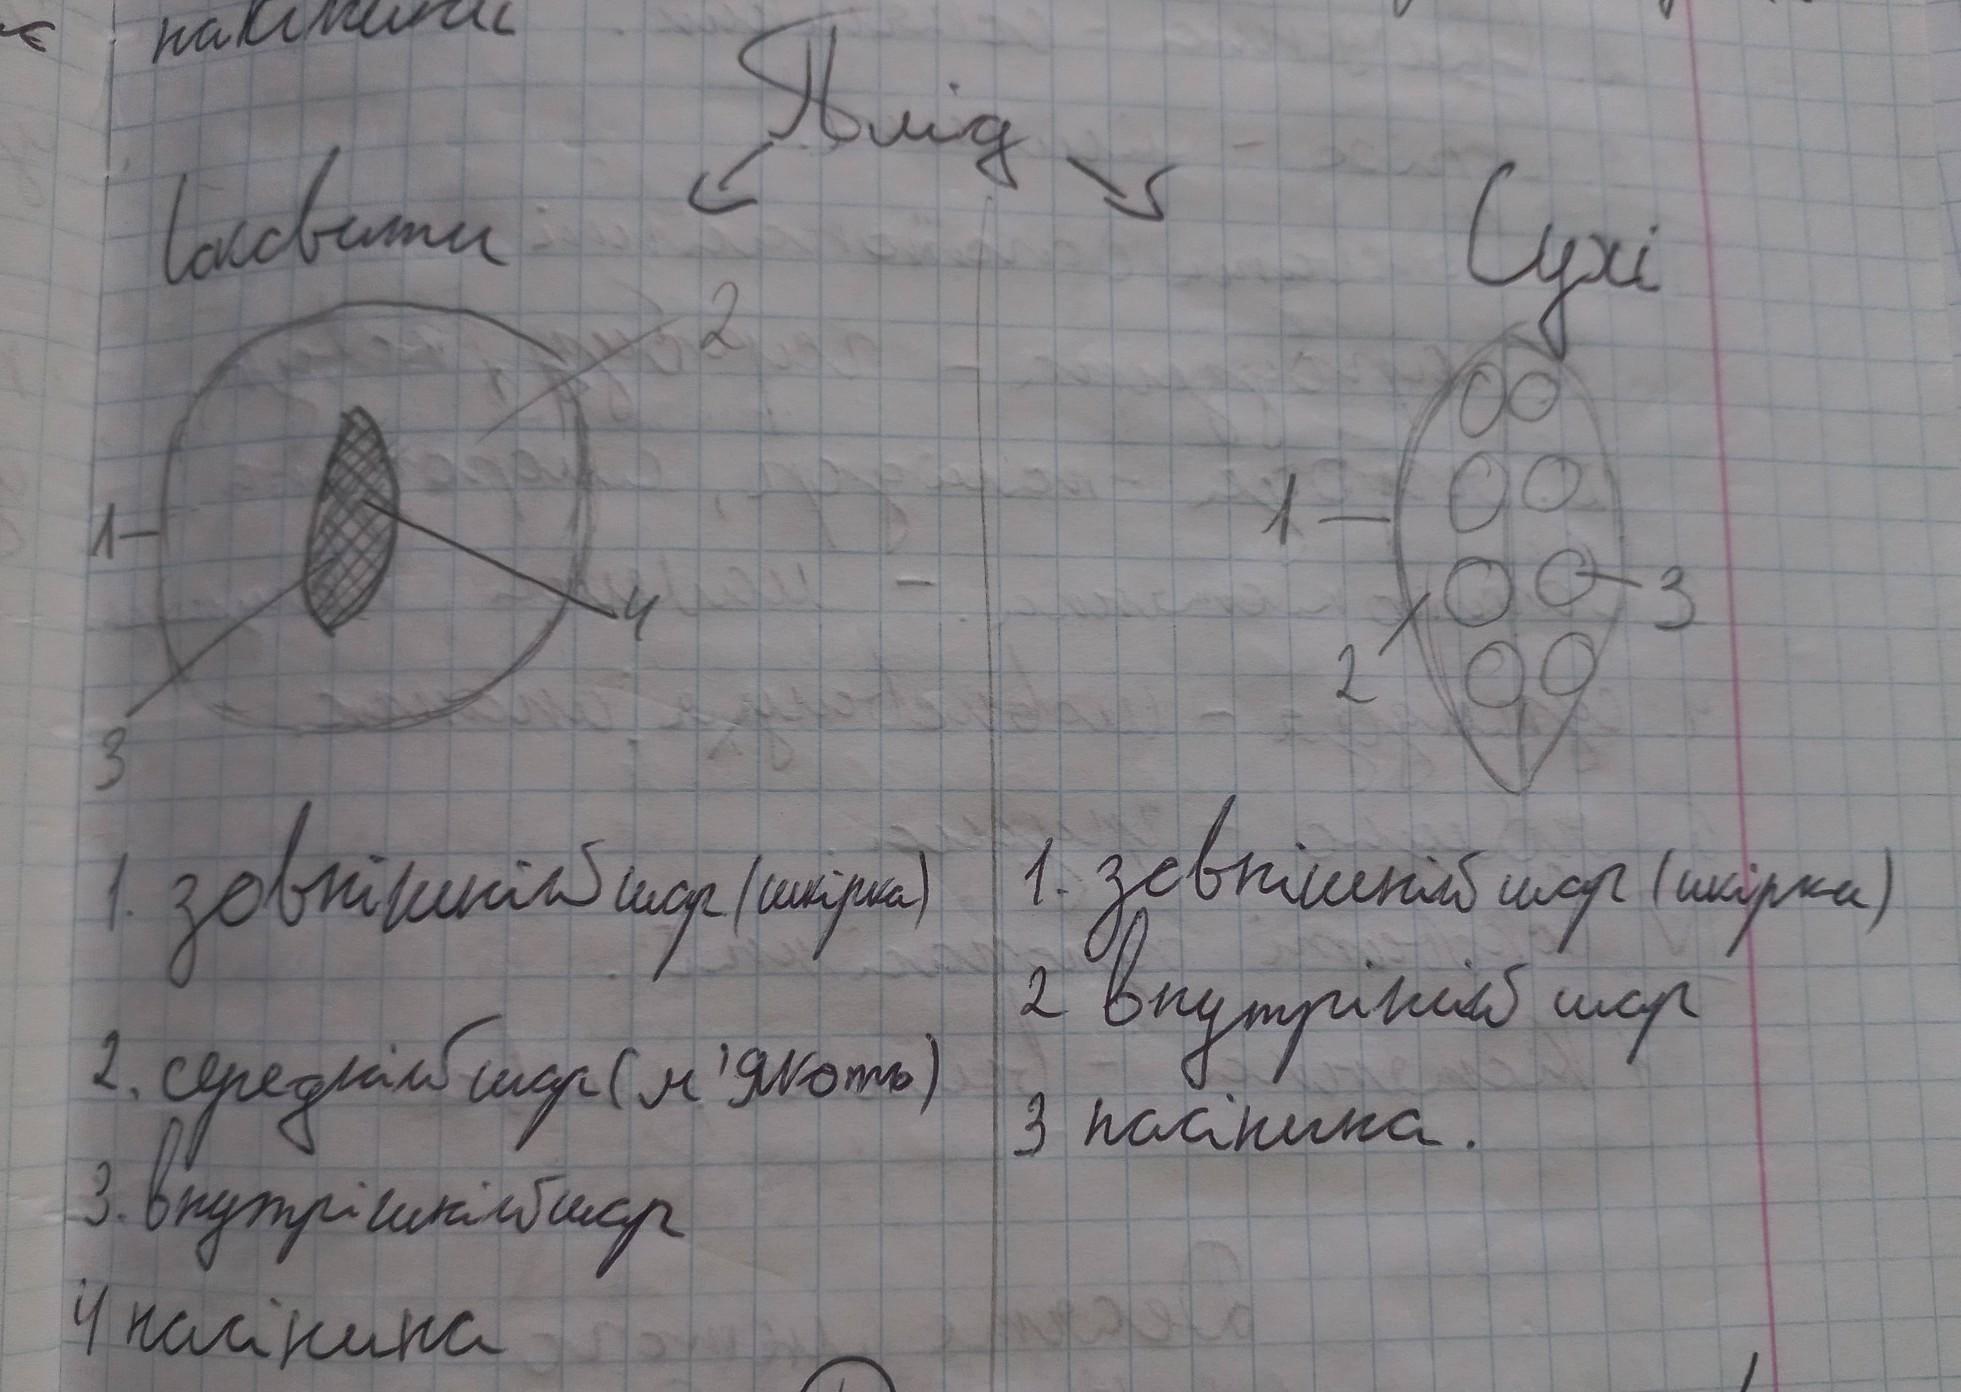 Плід
Соковити
Сухі
2
1
4
3
1
3
2
1. зовнішній шар (шкірка)
2. середній шар (м'якоть)
3. внутрішній шар
4 насінина
1. зовнішній шар (шкірка)
2 внутрішній шар
3 насінина.